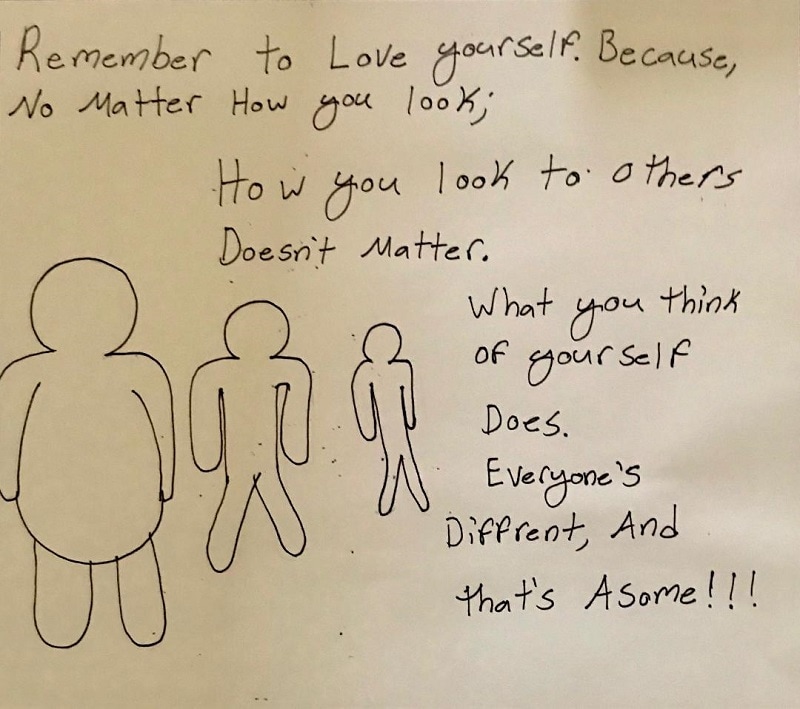 Remember to Love yourself. Because,
No Matter How you look;
How you look to others
Doesn't Matter.
What you think
of yourself
Does.
Everyone's
Diffrent, And
that's Asome!!!